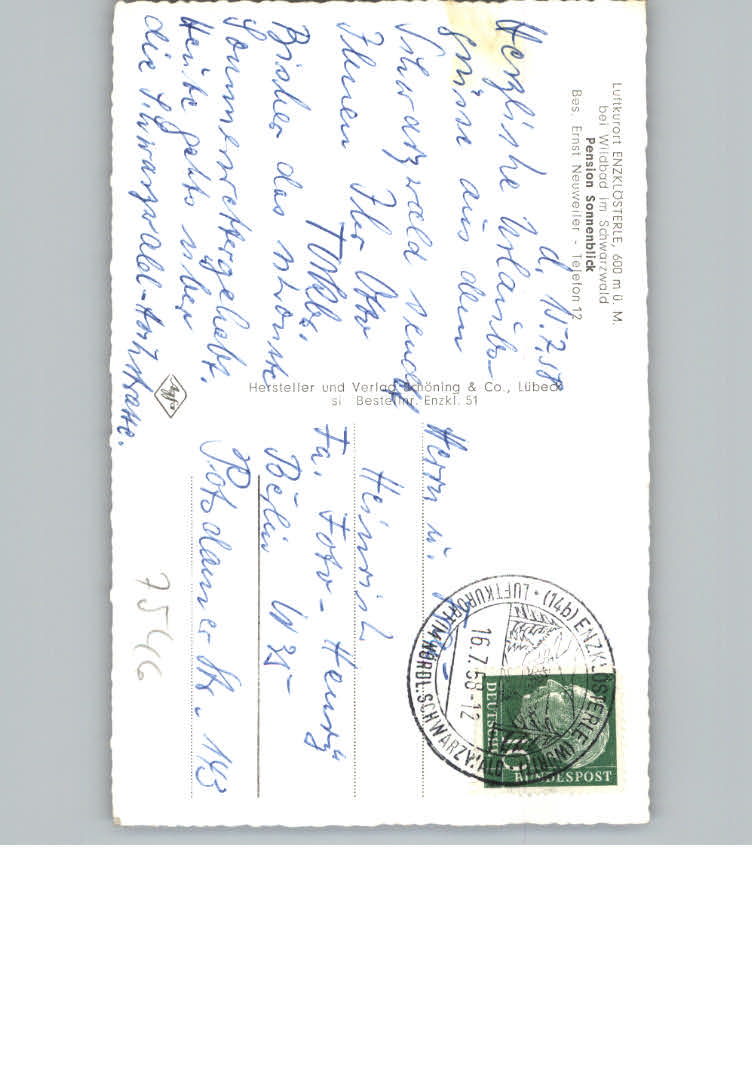 Luftkurort ENZKLÖSTERLE, 600 m ü. M.
bei Wildbad im Schwarzwald
Pension Sonnenblick
Bes. Ernst Neuweiler - Telefon 12
d. 15.7.58
Herzliche Urlaubs-
grüsse aus dem
Schwarzwald sendet
Ihnen Ihr Otto
Bisher das schönste
Sommerwetter gehabt.
Heute gehts über
die Schwarzwald-Hochstrasse.
Hersteller und Verlag Schöning & Co., Lübeck
si Bestellnr. Enzkl. 51
Agfa
Herrn u.
Heinrich
Fa. Foto-Henry
Berlin W 35
Potsdamer Str. 143
7546
(14b) ENZKLÖSTERLE
LUFTKURORT IM NÖRDL. SCHWARZWALD
16.7.58-12
DEUTSCHE
BUNDESPOST